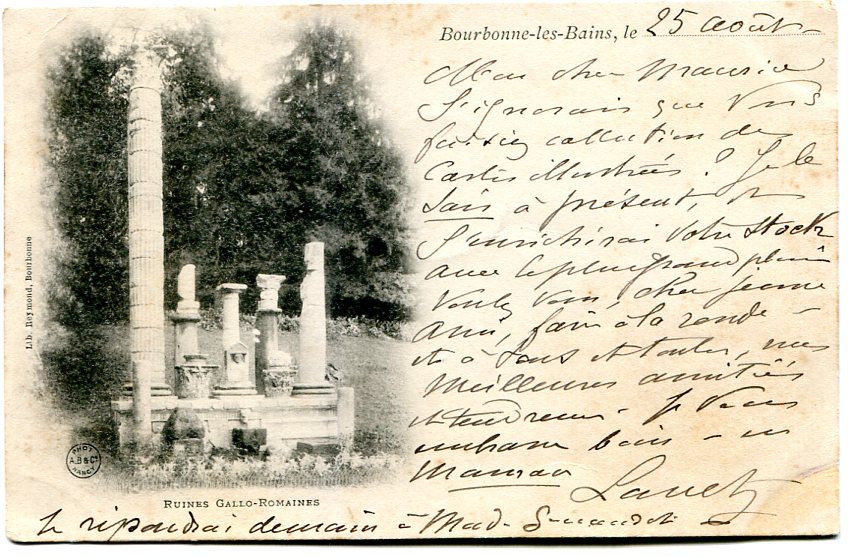 Bourbonne-les-Bains, le 25 août
Mon cher Maurice
J'ignorais que Vous
faisiez collection de
Cartes illustrées ? Je le
sais à présent, et
J'enrichirai Votre Stock
avec le plus grand plaisir
Voulez Vous, cher jeune
Ami, faire à la ronde -
et à Tous et toutes, mes
Meilleures amitiés
et tendresses - Je Vous
embrasse bien - 
Maman
Je répondrai demain à Mad.
Lib. Reymond, Bourbonne
PHOT
A.B & Cie
NANCY
RUINES GALLO-ROMAINES